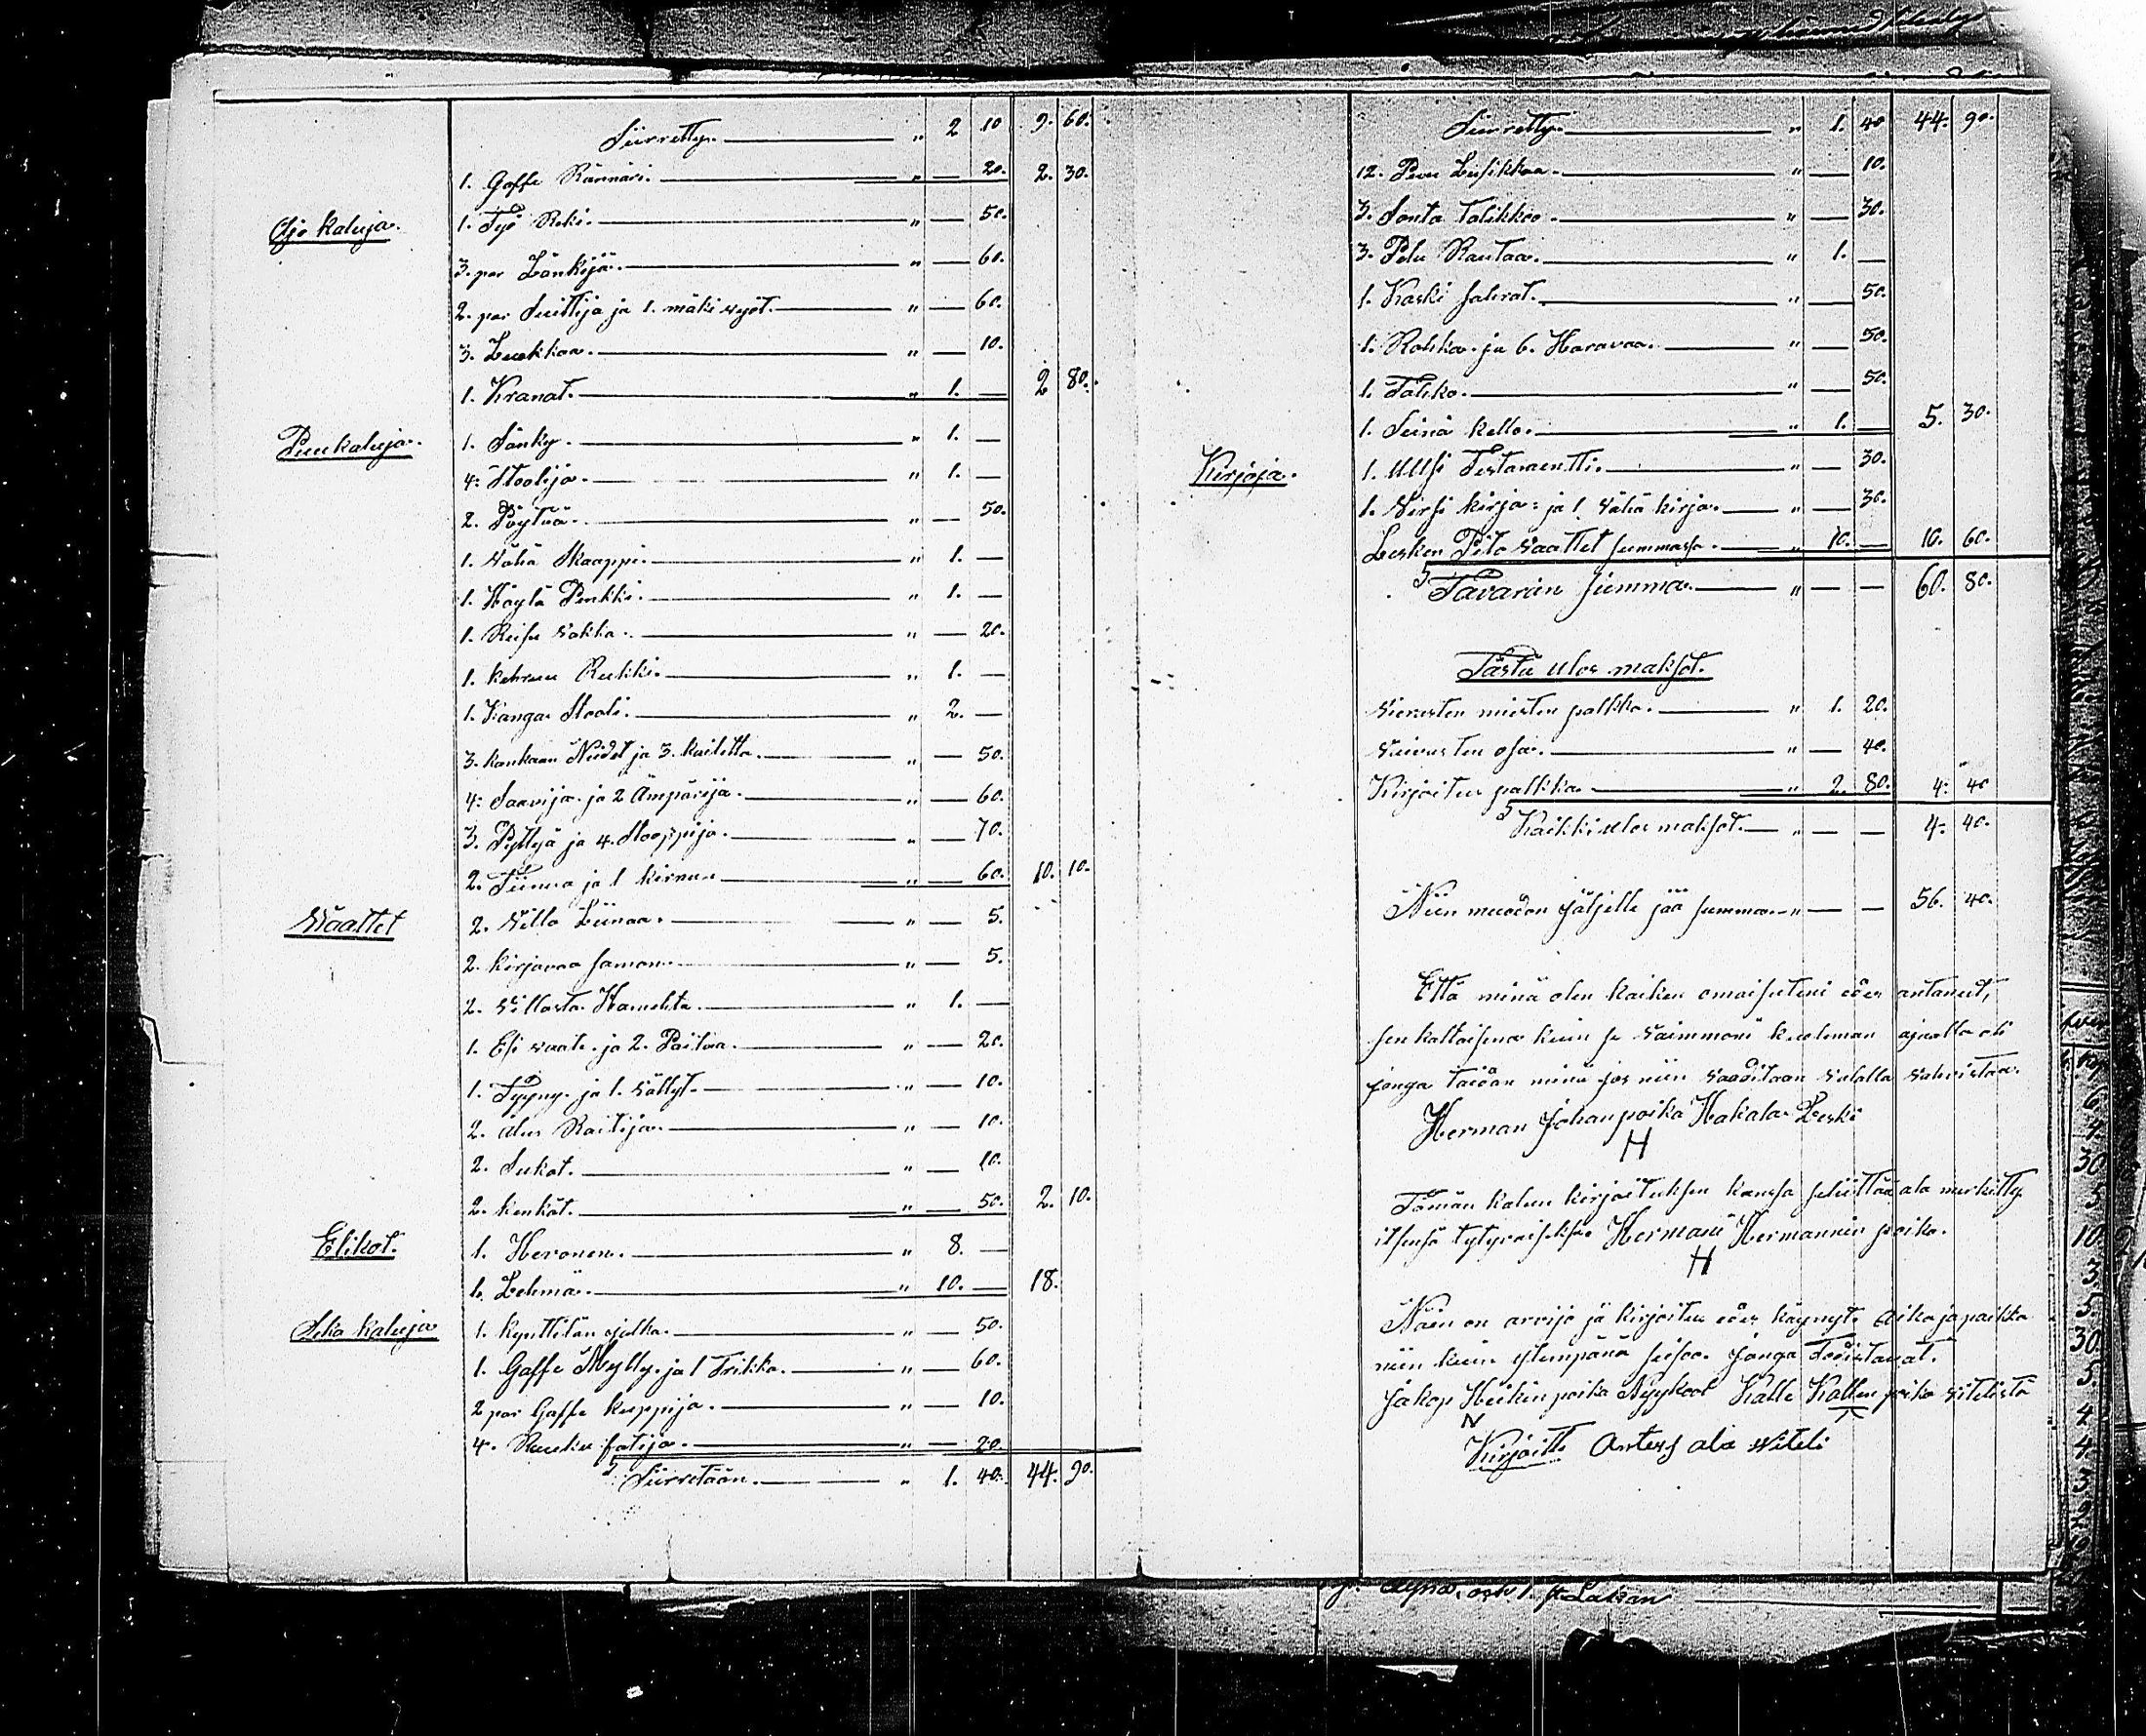 Siirretty. " 2 10 9. 60.
1. Gaffe Rännäri. " — 20. 2. 30.
Ajo kaluja. 1. Työ Reki. " — 50.
3. par Länkijä. " — 60.
2. par Suittija ja 1. mäki vyöt. " — 60.
3. Luokkaa. " — 10.
1. Kranat. " 1. — 2 80.
Puukaluja. 1. Sänky. " 1. —
4. Stoolija. " 1. —
2. Pöytää. " — 50.
1. Vähä Skaappi. " 1. —
1. Höylä Penkki. " 1. —
1. Reisu Vakka. " — 20.
1. kehruu Rukki. " 1. —
1. Kangas Stooli. " 2. —
3. kankaan Niidet ja 3. kaidetta. " — 50.
4. Saavija ja 2 Ämpärijä. " — 60.
3. Pyttyä ja 4. Stooppija. " — 70.
2. Tiinua ja 1 kirnu. " — 60. 10. 10.
Waattet 2. Villa Liinaa. " — 5.
2. kirjavaa samon. " — 5.
2. Villasta Hametta. " 1. —
1. Esi vaate. ja 2. Paitaa. " — 20.
1. Tyyny. ja 1. Vällyt. " — 10.
2. alus Raitija. " — 10.
2. Sukat. " — 10.
2. kenkät. " — 50. 2. 10.
Elikot. 1. Hevonen. " 8. —
1. Lehmä. " 10. — 18.
Seka kaluja 1. kynttilän jalka. " — 50.
1. Gaffe Mylly. ja 1 Trikka. " — 60.
2 par Gaffe kuppija. " — 10.
4. Ruuku fatija. " — 20.
Siirretään. " 1. 40. 44. 90.
Siirretty. " 1. 40 44. 90.
12. Puu Lusikkaa. " — 10.
3. Sonta Talikkoo. " — 30.
3. Pelu Rautaa. " 1. —
1. Kaski sahrat. " — 50.
1. Kolikka. ja 6. Haravaa. " — 50.
1. Taliko. " — 50.
1. Seinä kello. " 1. — 5. 30.
Kirjoja. 1. Uusi Testamentti. " — 30.
1. Virsi kirja: ja 1 Vähä kirja. " — 30.
Lesken Pito Vaattet summassa. " 10. — 10. 60.
Tavaran summa. " — — 60. 80.
Tästä ulos maksot.
Vierasten miesten palkka. " 1. 20.
Vaivasten osa. " — 40.
Kirjoitus palkka. " 2. 80. 4. 40
Kaikki ulos maksot. " — — 4. 40.
Niin muodon jäljelle jää summa. " — — 56. 40.
Että minä olen kaiken omaisuteni edes antanut,
sen kaltaisena kuin se Vainmoni kuoleman ajaalla oli
jonga taidan minä jos niin Vaaditaan Valalla Vahvistaa.
Herman Johanpoika Hakala Leski
H
Tämän kalun kirjoituksen kanssa seliittää ala merkitty
itsensä tytyväiseksi. Hermani Hermannin poika.
H
Näin on arvijo ja kirjoitus edes käynyt. Aika ja paikka
niin kuin ylempänä seisoo. jonga Todistavat.
Jakop Heikin poika Nyykool Kalle Kallen poika Vitelistä
N
Kirjoitti Anters ala Viteli